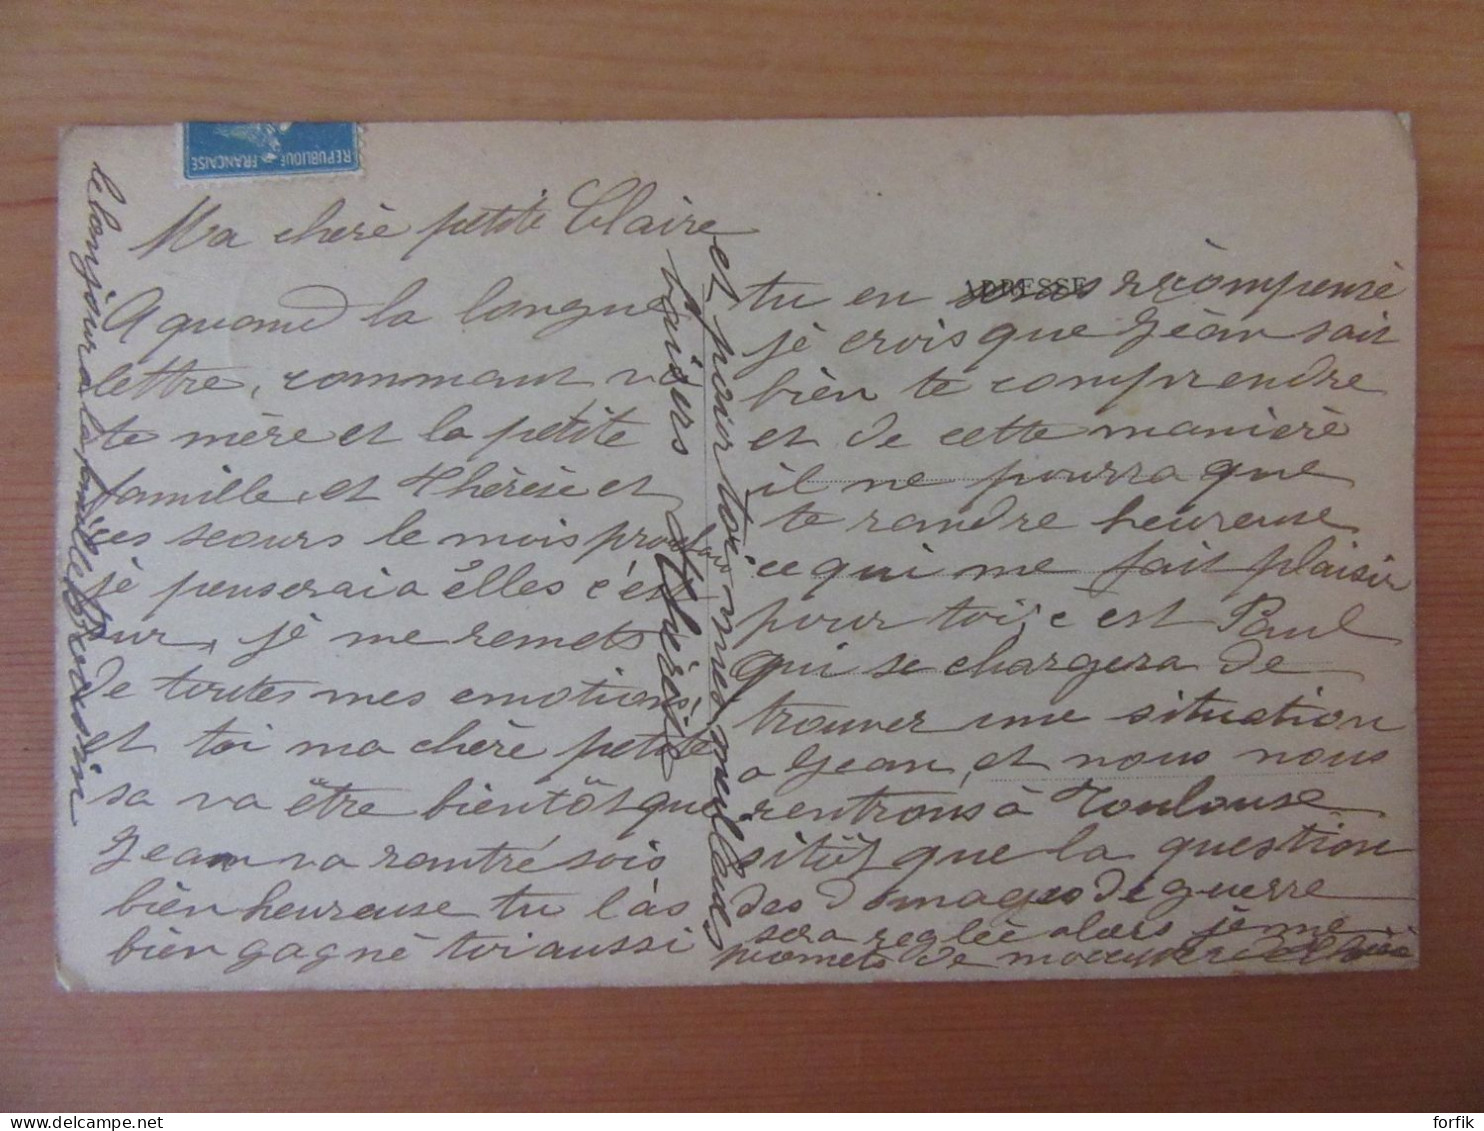 REPUBLIQUE FRANÇAISE
Ma chère petite Claire
A quand la longue
lettre, commant va
te mère et la petite
famille, et Thérèse et
ces seours le mois prochain
je penserai a elles c'est
sur, je me remets
de toutes mes emotions,
et toi ma chère petite
sa va être bientôt que
Jean va rantré sois
bien heureuse tu l'as
bien gagné toi aussi
ADRESSE
tu en seras récompensé
je crois que Jean sait
bien te comprendre
et de cette manière
il ne pourra que
te randre heureuse
ce qui me fait plaisir
pour toi, c'est Paul
qui se chargera de
trouver une situation
a Jean, et nous nous
rentrons à Toulouse
sitôt que la question
des domages de guerre
sera reglée alors je me
promets de
et pour toi mes meilleurs
baisers
Thérèse
le bonjour a la famille